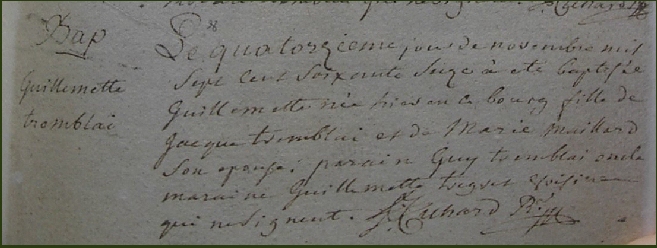 Bap
Guillemette
tremblai
Le quatorzieme jour de novembre mil
sept cent soixante seize à eté baptisée
Guillemette née hier en ce bourg fille de
jacque tremblai et de Marie maillard
son epouse; parain Guy tremblai oncle
maraine Guillemette
qui ne signent.